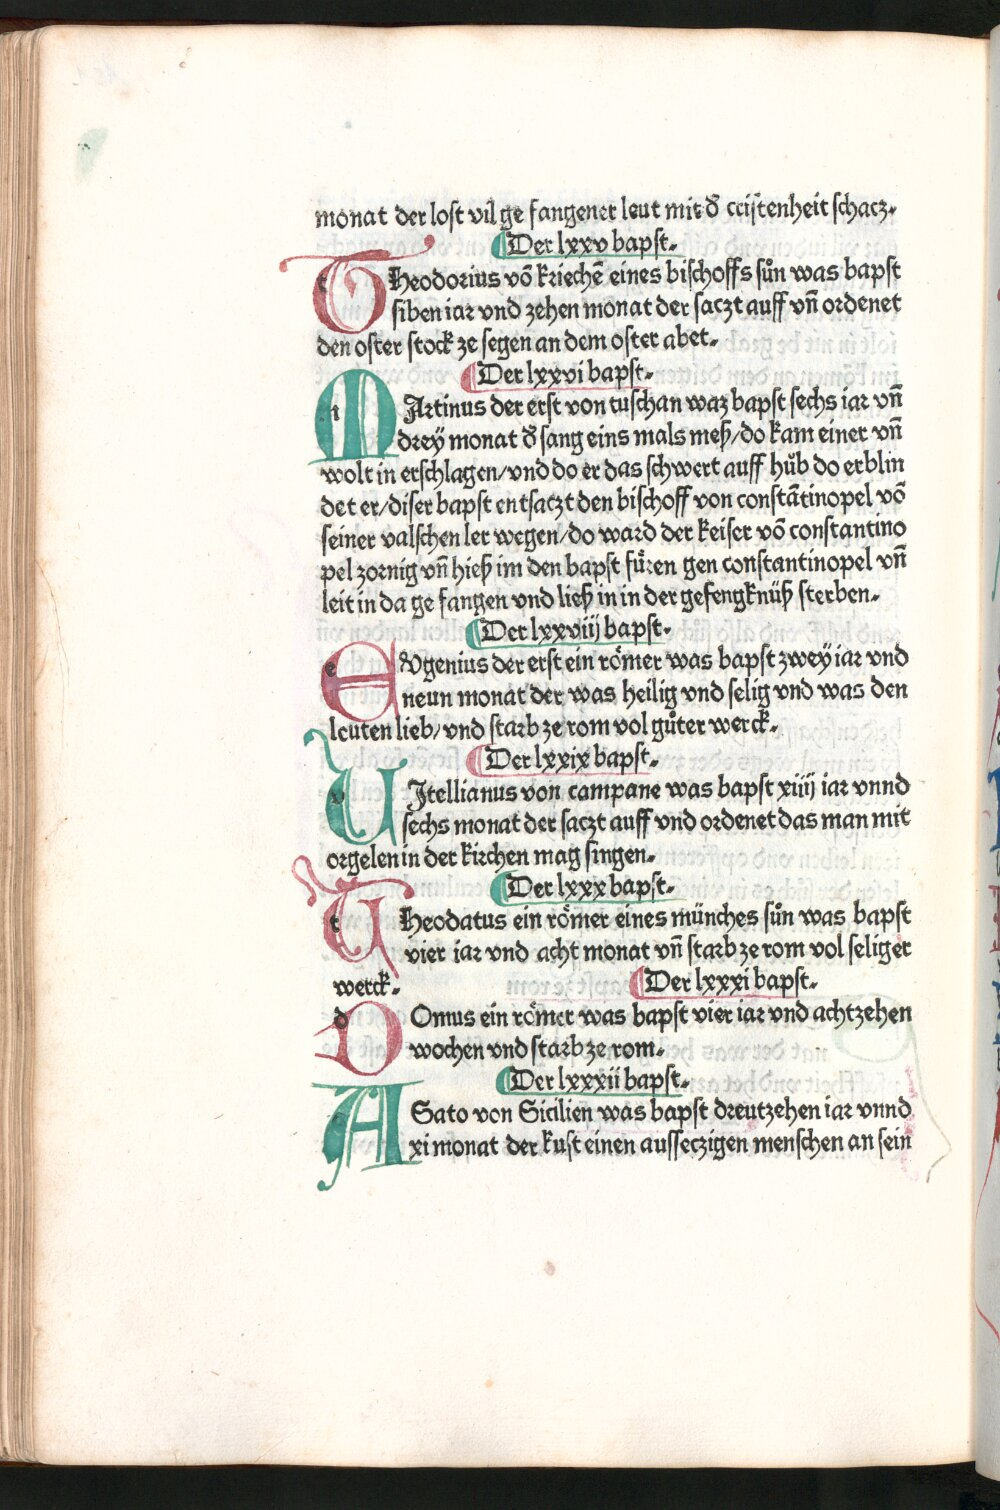 monat der lost vil ge fangener leut mit d̕ cristenheit schacz.
Der lxxv bapst.
THeodorius vō kriechē eines bischoffs sůn was bapst
siben iar vnd zehen monat der saczt auff vn̄ ordenet
den oster stock ze segen an dem oster abet.
Der lxxvi bapst.
MArtinus der erst von tuschan waz bapst sechs iar vn̄
dreÿ monat d̕ sang eins mals meß/do kam einer vn̄
wolt in erschlagen/vnd do er das schwert auff hůb do erblin
det er/diser bapst entsaczt den bischoff von constātinopel vō
seiner valschen ler wegen/do ward der keiser vō constantino
pel zornig vn̄ hieß im den bapst fu̎ren gen constantinopel vn̄
leit in da ge fangen vnd ließ in in der gefengknüß sterben.
Der lxxviij bapst.
EVgenius der erst ein ro̎mer was bapst zweÿ iar vnd
neun monat der was heilig vnd selig vnd was den
leuten lieb/vnd starb ze rom vol gůter werck.
Der lxxix bapst.
VItellianus von campane was bapst xiiij iar vnnd
sechs monat der saczt auff vnd ordenet das man mit
orgelen in der kirchen mag singen.
Der lxxx bapst.
THeodatus ein ro̎mer eines münches sůn was bapst
vier iar vnd acht monat vn̄ starb ze rom vol seliger
werck.
Der lxxxi bapst.
DOmus ein ro̎mer was bapst vier iar vnd achtzehen
wochen vnd starb ze rom.
Der lxxxii bapst.
ASato von Sicilien was bapst dreutzehen iar vnnd
xi monat der kust einen ausseczigen menschen an sein